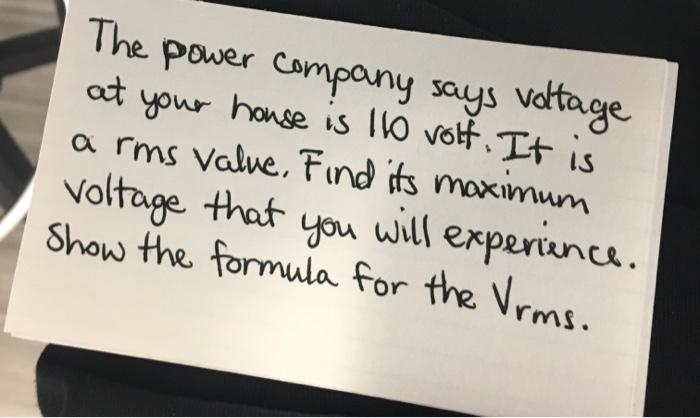 The power company says voltage
at your house is 110 volt. It is
a rms value. Find its maximum
voltage that you will experience.
Show the formula for the Vrms.